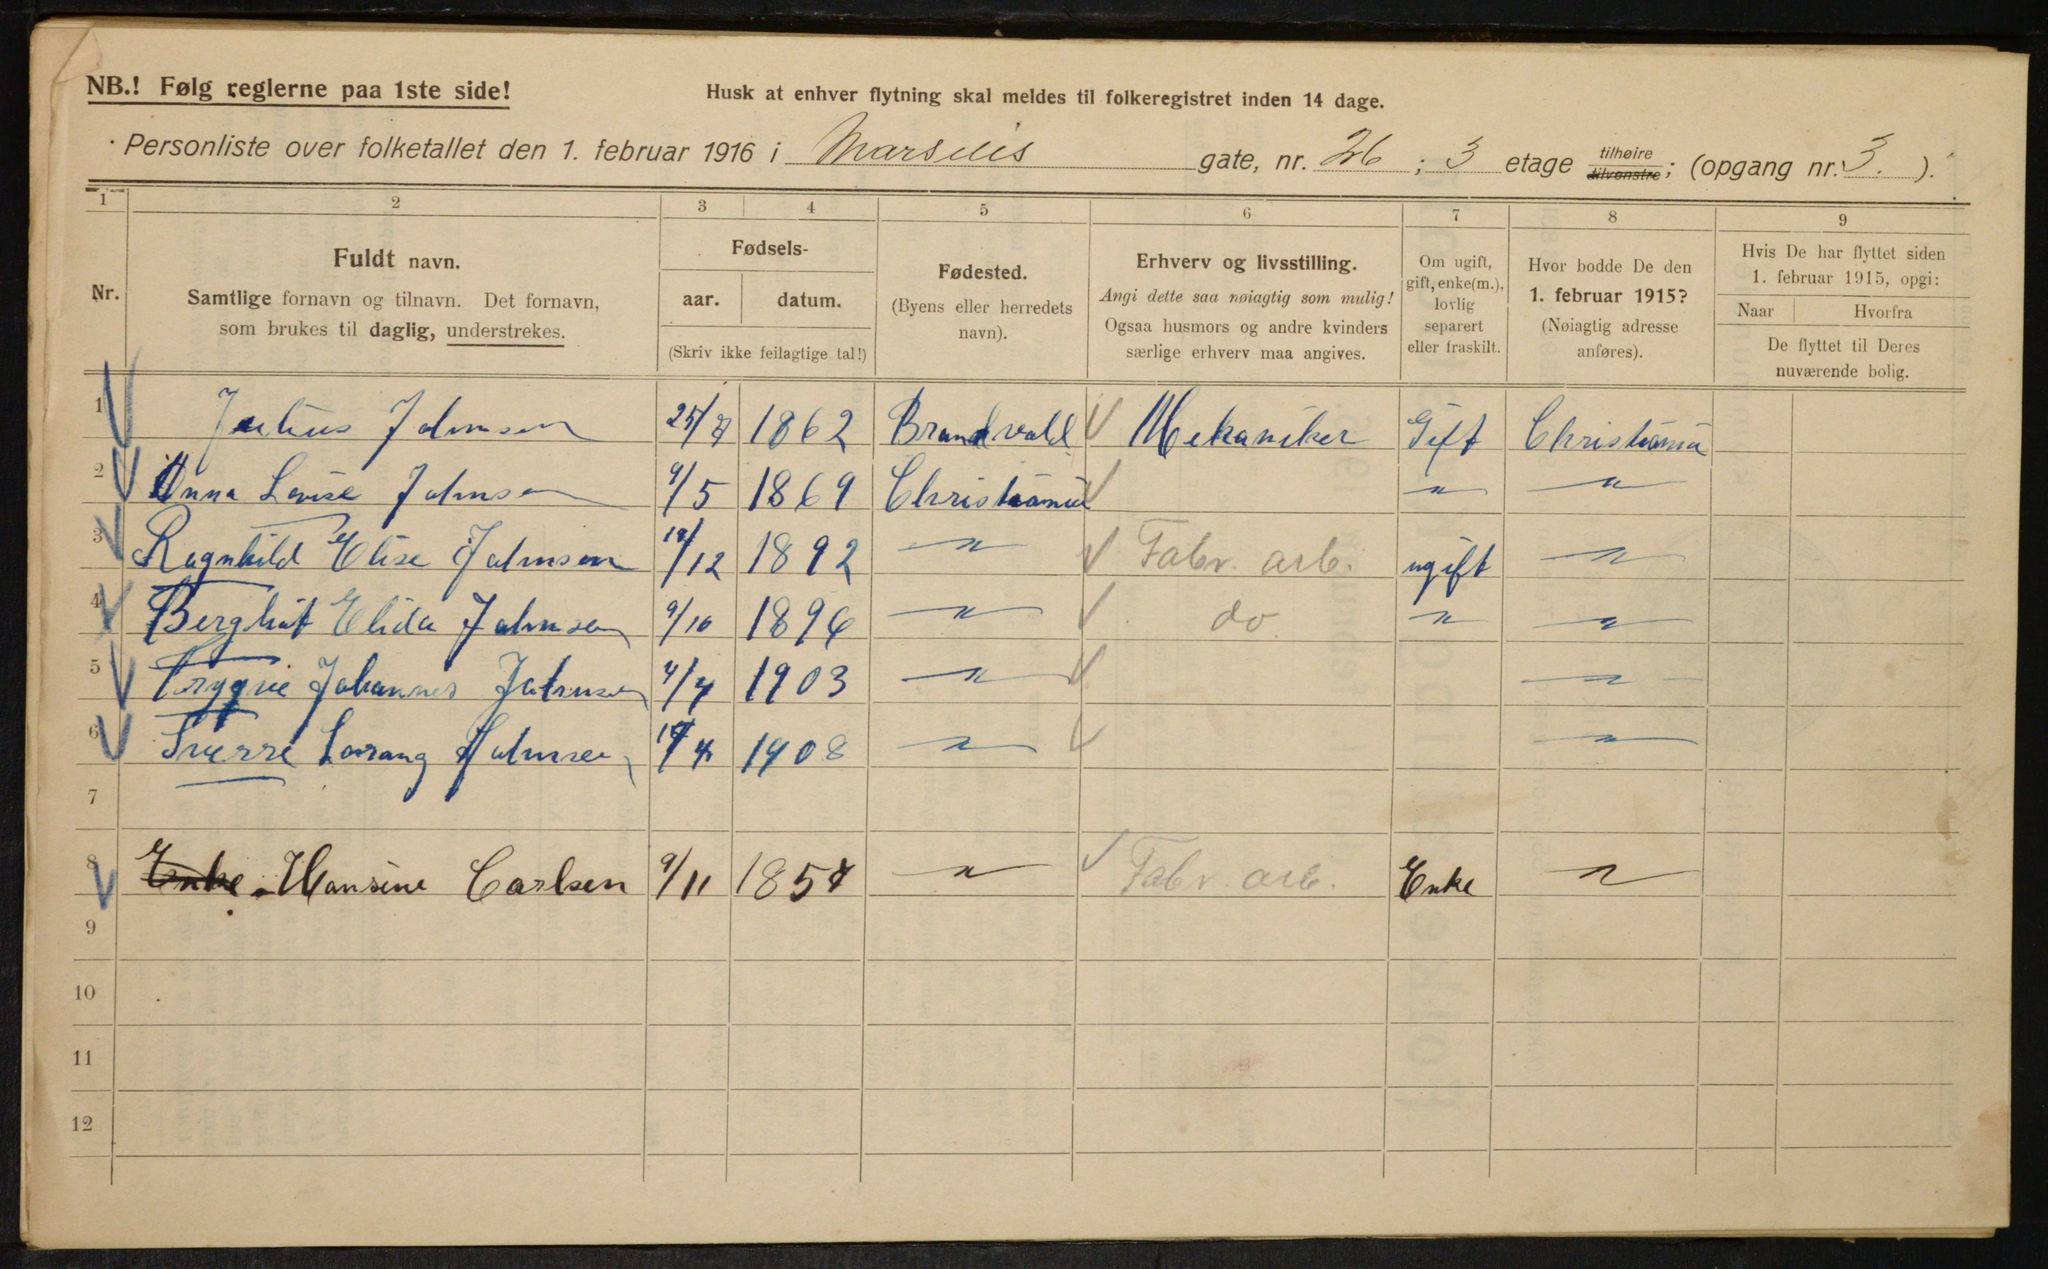 NB.! Følg reglerne paa 1ste side!
Husk at enhver flytning skal meldes til folkeregistret inden 14 dage.
Personliste over folketallet den 1. februar 1916 i Marselis gate, nr. 26; 3 etage tilhøire tilvenstre; (opgang nr. 3.).
1 2 3 4 5 6 7 8 9
Nr.
Fuldt navn.
Samtlige fornavn og tilnavn. Det fornavn,
som brukes til daglig, understrekes.
Fødsels-
aar. datum.
(Skriv ikke feilagtige tal!)
Fødested.
(Byens eller herredets
navn).
Erhverv og livsstilling.
Angi dette saa nøiagtig som mulig!
Ogsaa husmors og andre kvinders
særlige erhverv maa angives.
Om ugift,
gift, enke(m.),
lovlig
separert
eller fraskilt.
Hvor bodde De den
1. februar 1915?
(Nøiagtig adresse
anføres).
Hvis De har flyttet siden
1. februar 1915, opgi:
Naar Hvorfra
De flyttet til Deres
nuværende bolig.
1 Julius Johnsen 25/7 1862 Brandvald Mekaniker Gift Christiania
2 Anna Lovise Johnsen 9/5 1869 Christiania " "
3 Ragnhild Elise Johnsen /12 1892 " Fabr. arb. ugift "
4 Bergliot Elida Johnsen 9/10 1896 " do " "
5 Trygve Johannes Johnsen 4/4 1903 " "
6 Sverre Johnsen /4 1908 " "
7
8 Enke Hansine Carlsen 9/11 1854 " Fabr. arb. Enke "
9
10
11
12